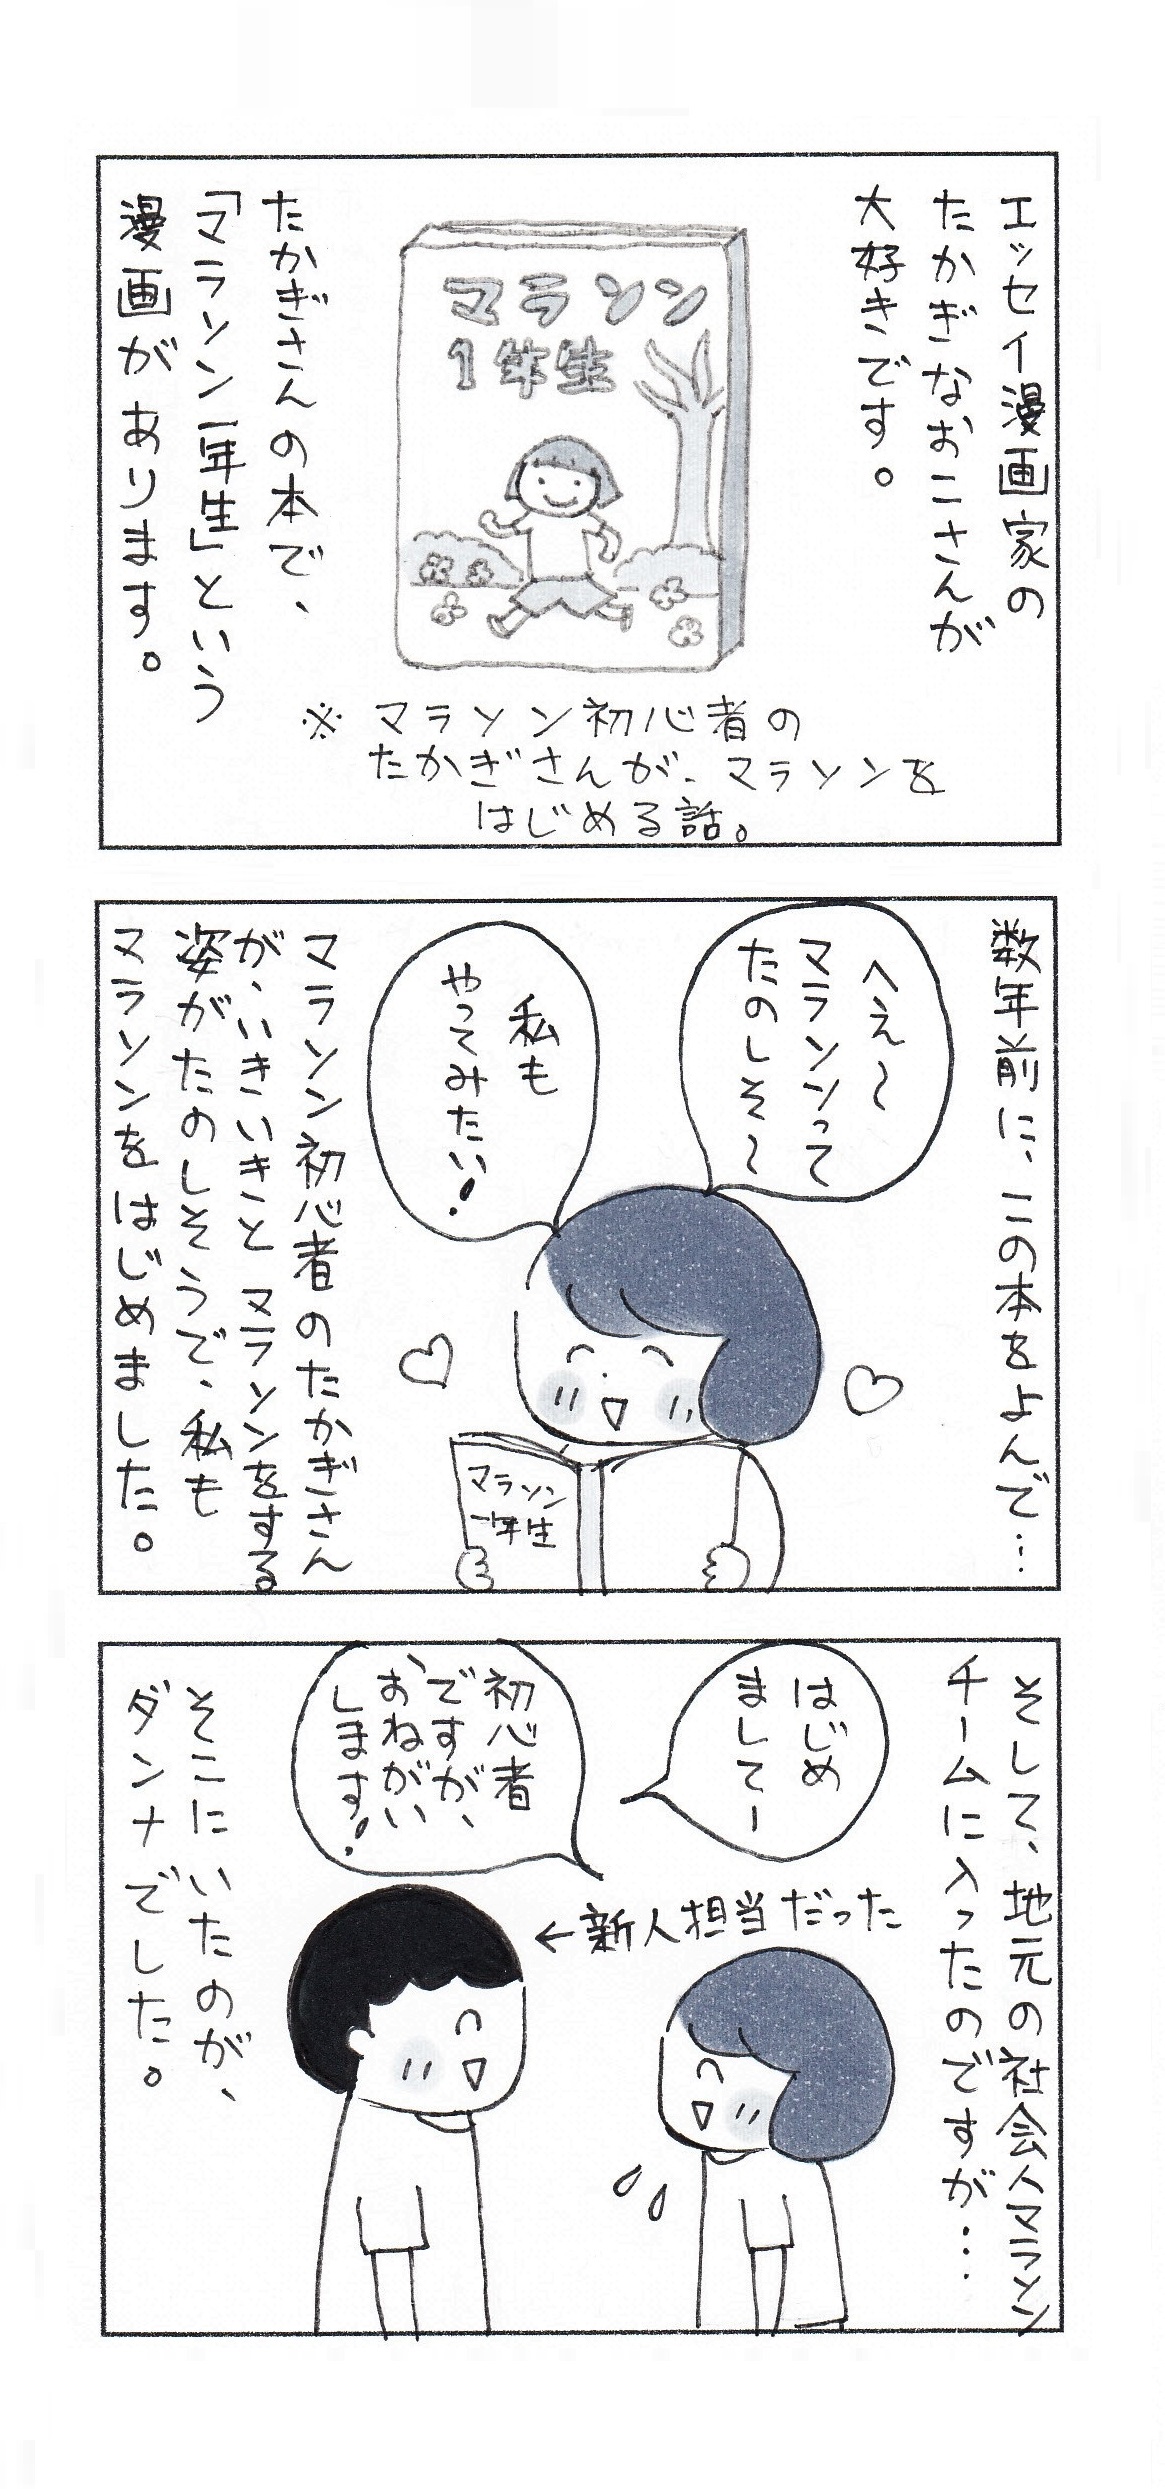 エッセイ漫画家の
たかぎなおこさんが
大好きです。
マラソン
1年生
たかぎさんの本で、
「マラソン一年生」という
漫画があります。
※マラソン初心者の
たかぎさんが、マラソンを
はじめる話。
数年前に、この本をよんで…
へえ〜
マラソンって
たのしそ〜
私も
やってみたい!
マラソン
一年生
マラソン初心者のたかぎさん
が、いきいきとマラソンをする
姿がたのしそうで、私も
マラソンをはじめました。
そして、地元の社会人マラソン
チームに入ったのですが…
はじめ
ましてー
初心者
ですが、
おねがい
します!
←新人担当だった
そこにいたのが、
ダンナでした。